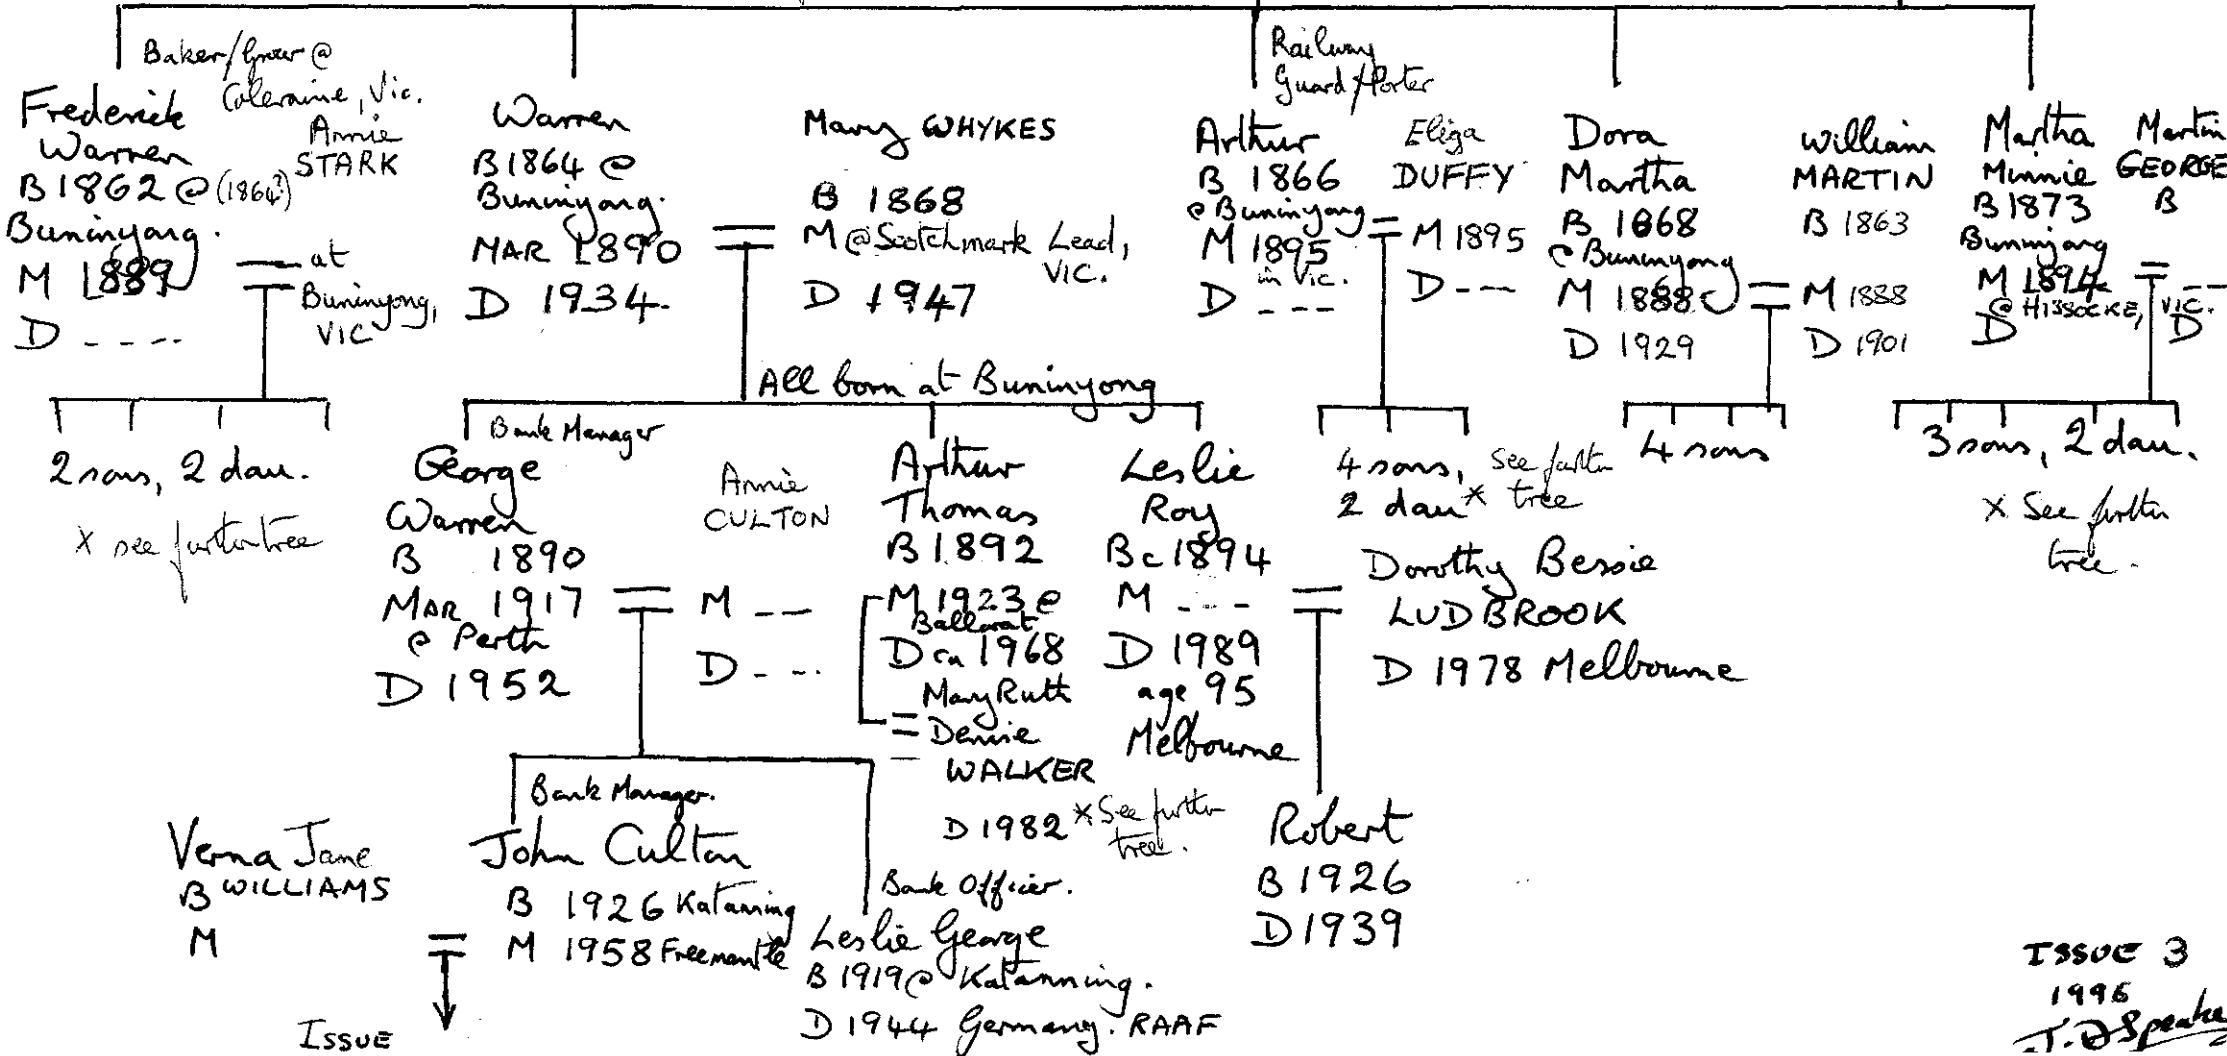 Baker/Grocer @
Coleraine, Vic.
Frederick
Warren
B 1862 @ (1864?)
Buninyong.
M 1889
D ----
Annie
STARK
at
Buninyong,
VIC
2 sons, 2 dau.
X see further tree
Warren
B 1864 @
Buninyong.
MAR 1890
D 1934.
Mary WHYKES
B 1868
M @ Scotchmark Lead,
VIC.
D 1947
All born at Buninyong
Railway
Guard/Porter
Arthur
B 1866
@ Buninyong
M 1895
in Vic.
D ---
Eliza
DUFFY
M 1895
D ---
4 sons,
2 dau
X see further
tree
Dora
Martha
B 1868
@ Buninyong
M 1888
D 1929
William
MARTIN
B 1863
M 1888
D 1901
4 sons
Martha
Minnie
B 1873
Buninyong
M 1894
@ HISSOCKE, VIC.
D
Martin
GEORGE
B
---
D
3 sons, 2 dau.
X See further
tree.
Bank Manager
George
Warren
B 1890
MAR 1917
@ Perth
D 1952
Annie
CULTON
M --
D ---
Arthur
Thomas
B 1892
M 1923 @
Ballarat
D ca 1968
Mary Ruth
Denise
WALKER
D 1982
X See further
tree.
Leslie
Roy
B c 1894
M ---
D 1989
age 95
Melbourne
Dorothy Bessie
LUDBROOK
D 1978 Melbourne
Verna Jane
WILLIAMS
B
M
Bank Manager.
John Culton
B 1926 Katanning
M 1958 Freemantle
ISSUE
Bank Officer.
Leslie George
B 1919 @ Katanning.
D 1944 Germany. RAAF
Robert
B 1926
D 1939
ISSUE 3
1996
J. D Speake